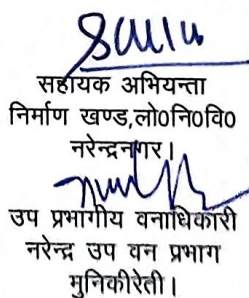 सहायक अभियन्ता
निर्माण खण्ड,लो०नि०वि०
नरेन्द्रनगर।
उप प्रभागीय वनाधिकारी
नरेन्द्र उप वन प्रभाग
मुनिकीरेती।